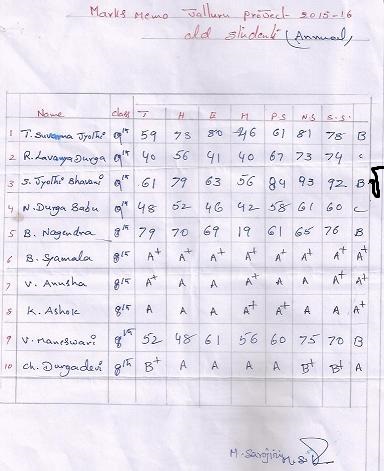 Marks Memo Valluru project 2015-16
old students (Annual)
Name class T H E M P.S N.S S.S.
1 T. Suvarna Jyothi 9th 59 73 80 46 61 81 78 B
2 R. Lavanya Durga 9th 40 56 41 40 67 73 74 C
3 S. Jyothi Bhavani 9th 61 79 63 56 84 93 92 B
4 N. Durga Babu 9th 48 52 46 42 58 61 60 C
5 B. Nagendra 8th 79 70 69 19 61 65 76 B
6 B. Syamala 8th A+ A+ A+ A+ A+ A+ A+ A+
7 V. Anusha 8th A+ A A A+ A A A+ A+
8 K. Ashok 8th A A A A+ A+ A A A+
9 V. Maneswari 9th 52 48 61 56 60 75 70 B
10 Ch. Durgadevi 8th B+ A A A A B+ B+ A
M. Sarojini